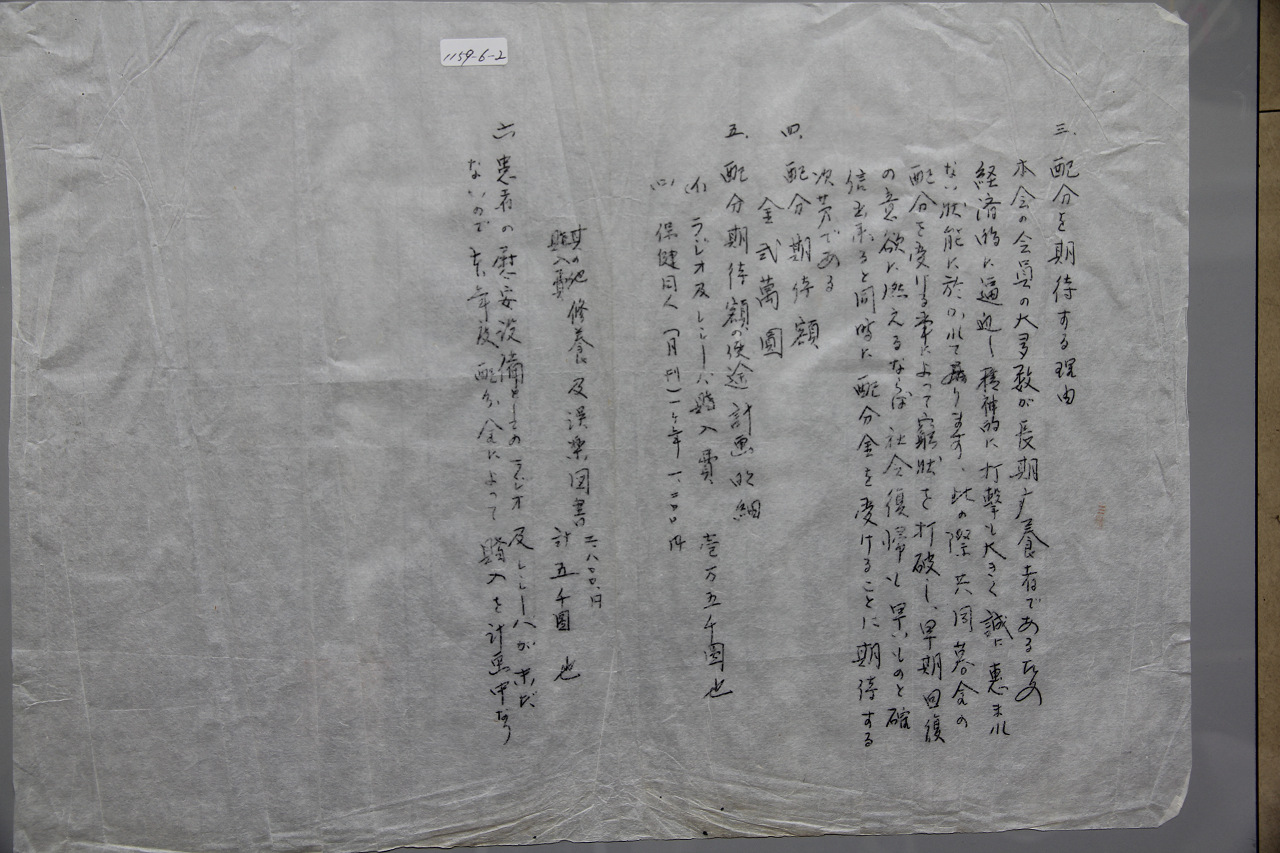 1159-6-2
三、配分を期待する理由
本会の会員の大多数が長期广養者であるため
経済的に逼迫し精神的に打撃も大きく誠に恵まれ
ない状態に於かれて居ります、此の際共同募金の
配分を受ける事によって窮状を打破し、早期回復
の意欲に燃えるならば社会復帰も早いものと確
信出来ると同時に配分金を受けることに期待する
次第である
四、配分期待額
金弐萬圓
五、配分期待額の使途計画明細
(イ)ラジオ及レシーバ購入費 壱万五千圓也
(ロ)保健同人(月刊)一ヶ年 一、二〇〇円
其の他修養及娯楽図書 三、八〇〇、円
購入費 計五千圓也
六、患者の慰安設備としてのラジオ及レシーバが未だ
ないので本年度配分金によって購入を計画中なり